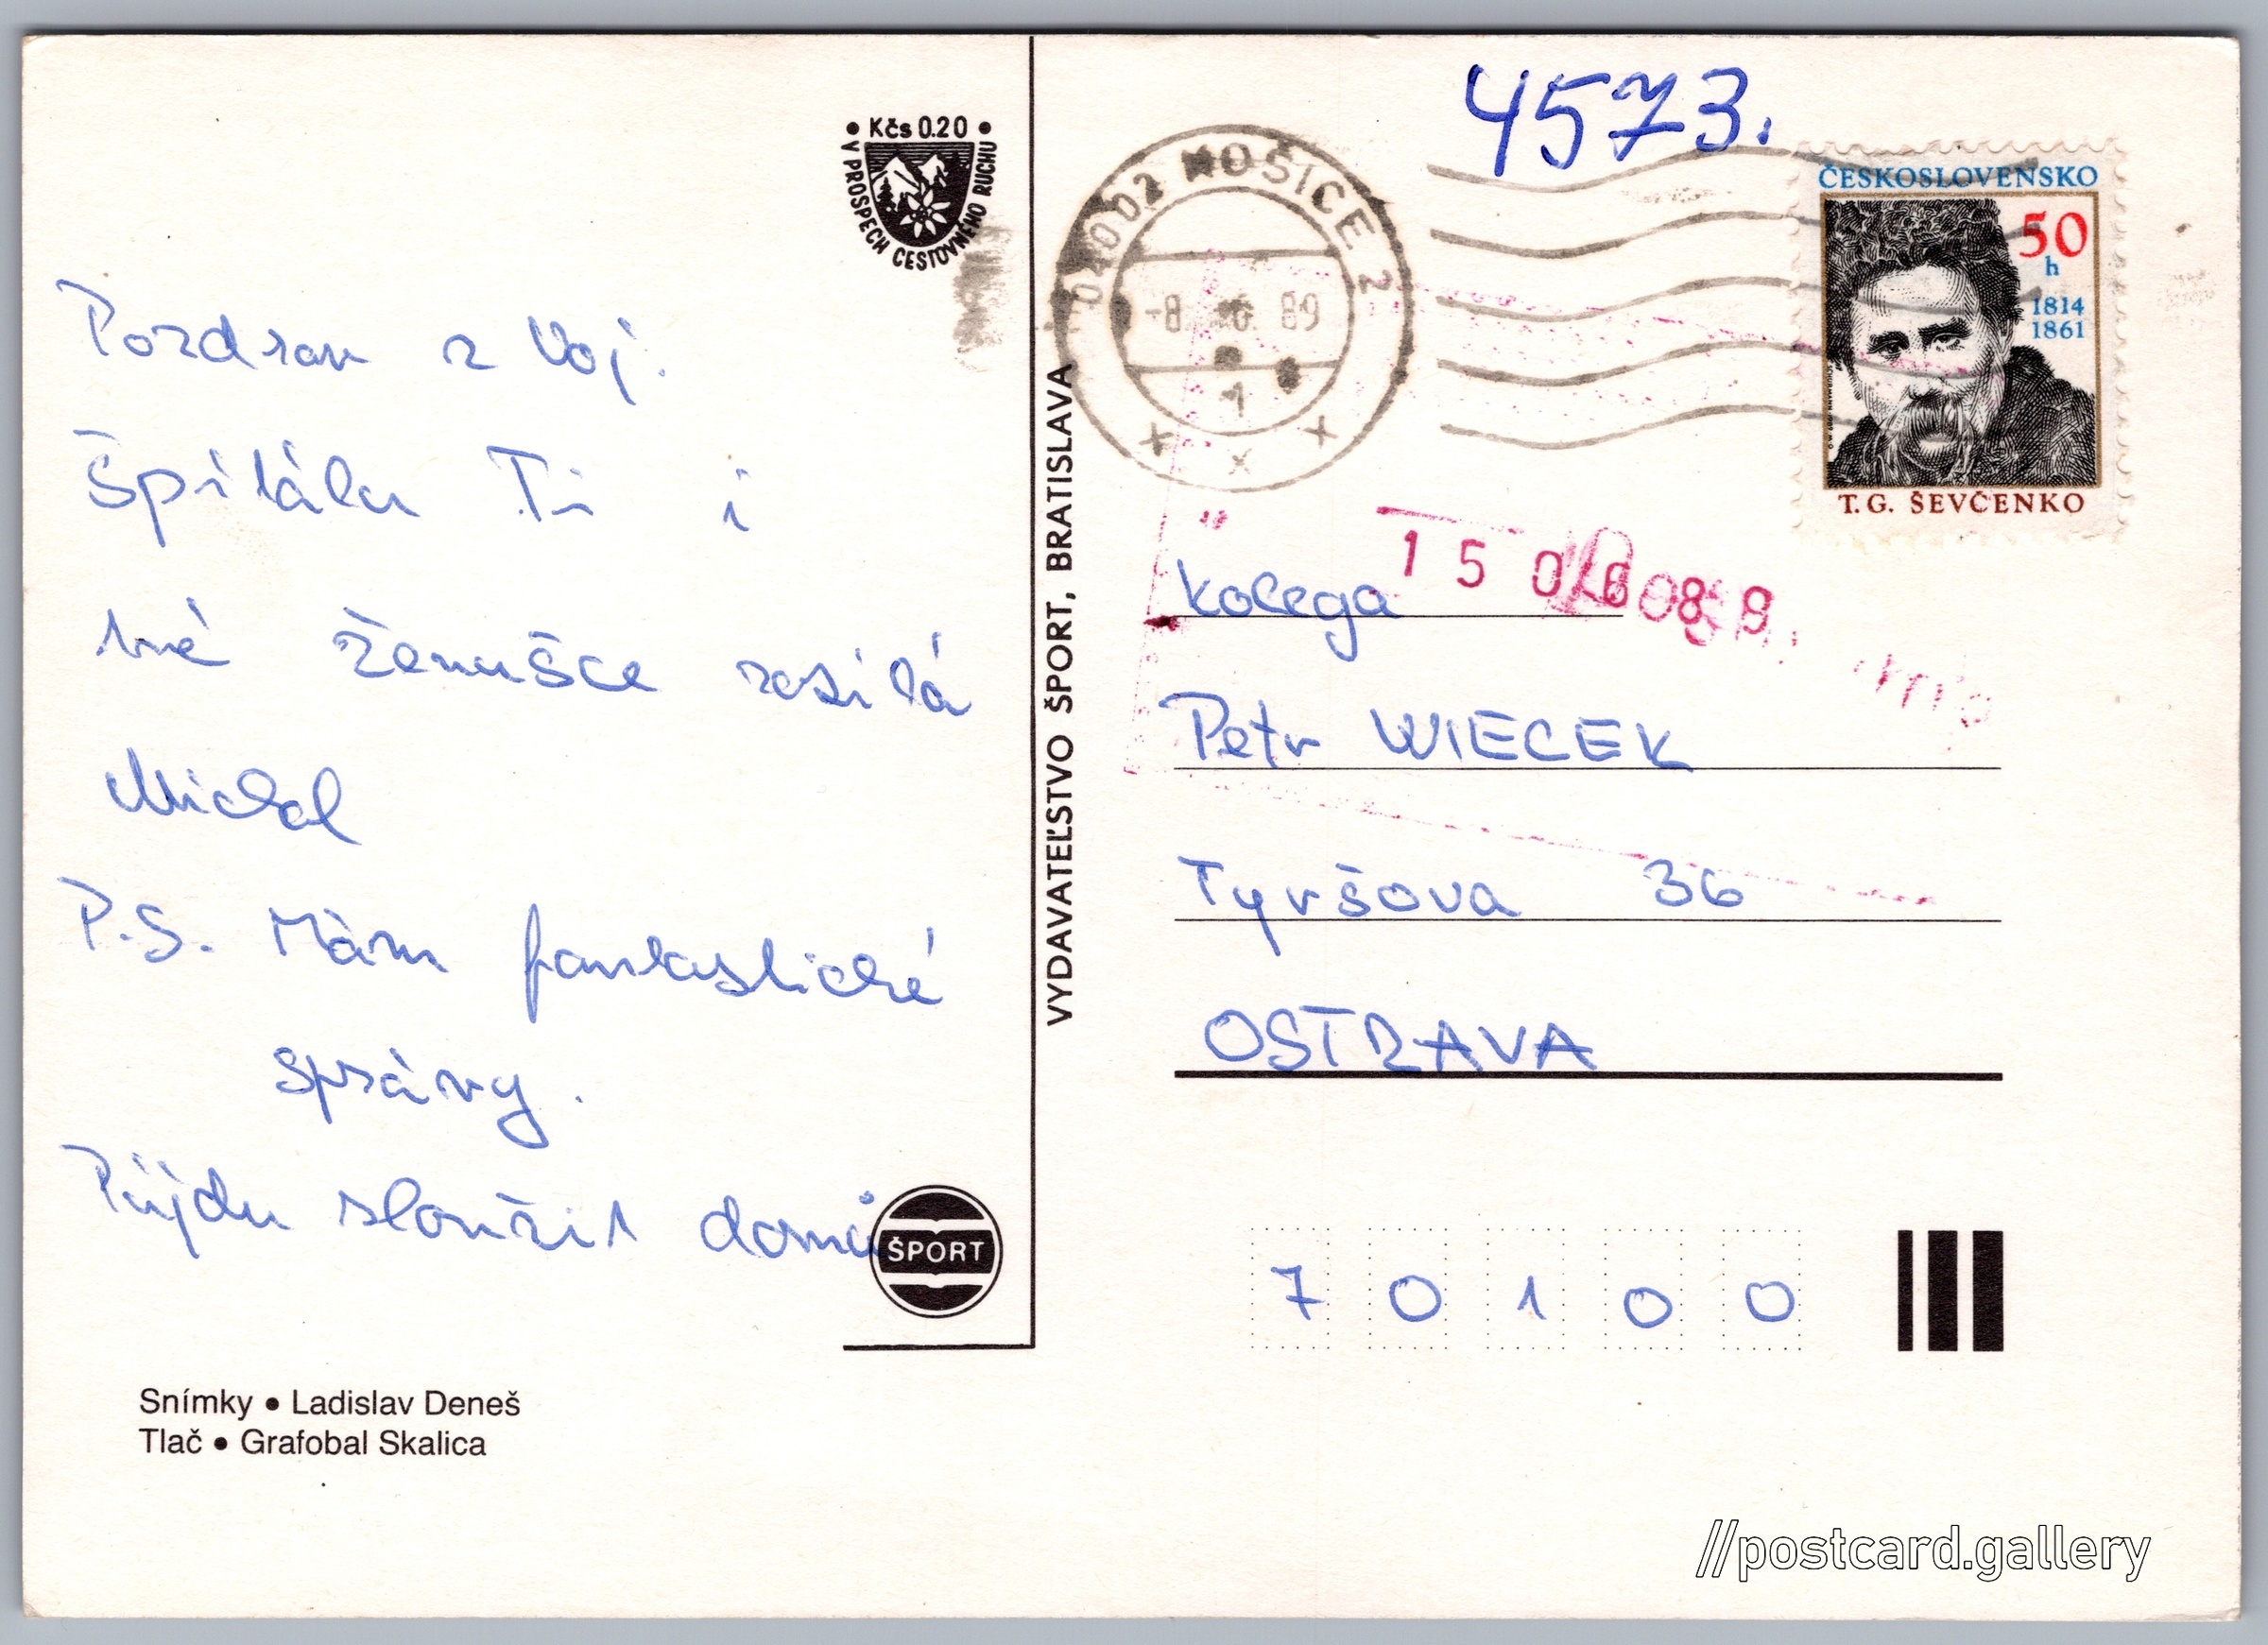 • Kčs 0.20 •
V PROSPECH CESTOVNÉHO RUCHU
Pozdrav z Voj.
Špitálu Ti i
tvé ženušce zasílá
Michal
P.S. Mám fantastické
správy.
Půjdu sloužit domů
ŠPORT
Snímky • Ladislav Deneš
Tlač • Grafobal Skalica
VYDAVATEĽSTVO ŠPORT, BRATISLAVA
4573.
04002 KOŠICE 2
-8. 6. 89
1
ČESKOSLOVENSKO
50
h
1814
1861
T. G. ŠEVČENKO
15 06 89
kolega
Petr WIECEK
Tyršova 36
OSTRAVA
7 0 1 0 0
//postcard.gallery